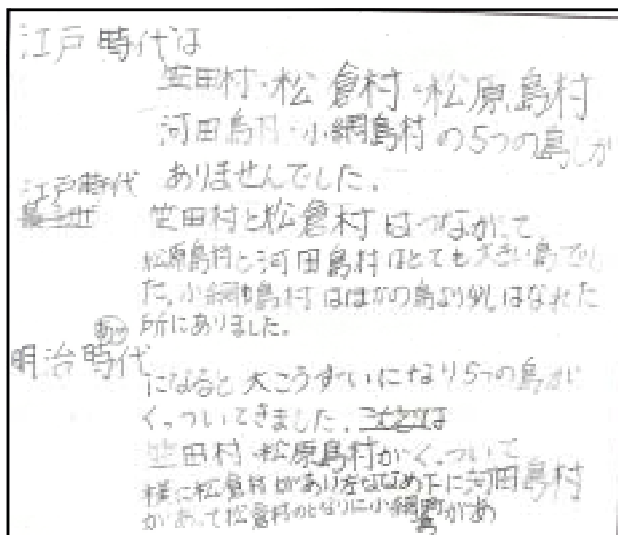 江戸時代は
笠田村・松倉村・松原島村
河田島村・小網島村の5つの島しか
ありませんでした。
江戸時代
笠田村と松倉村はつながって
松原島村と河田島村はとても大きい島でし
た。小網島村はほかの島より少しはなれた
所にありました。
明治時代
になると大こうずいになり5つの島が
くっついてきました。
笠田村・松原島村がくっついて
横に松倉村があり左ななめ下に河田島村
があって松倉村のとなりに小網島があ